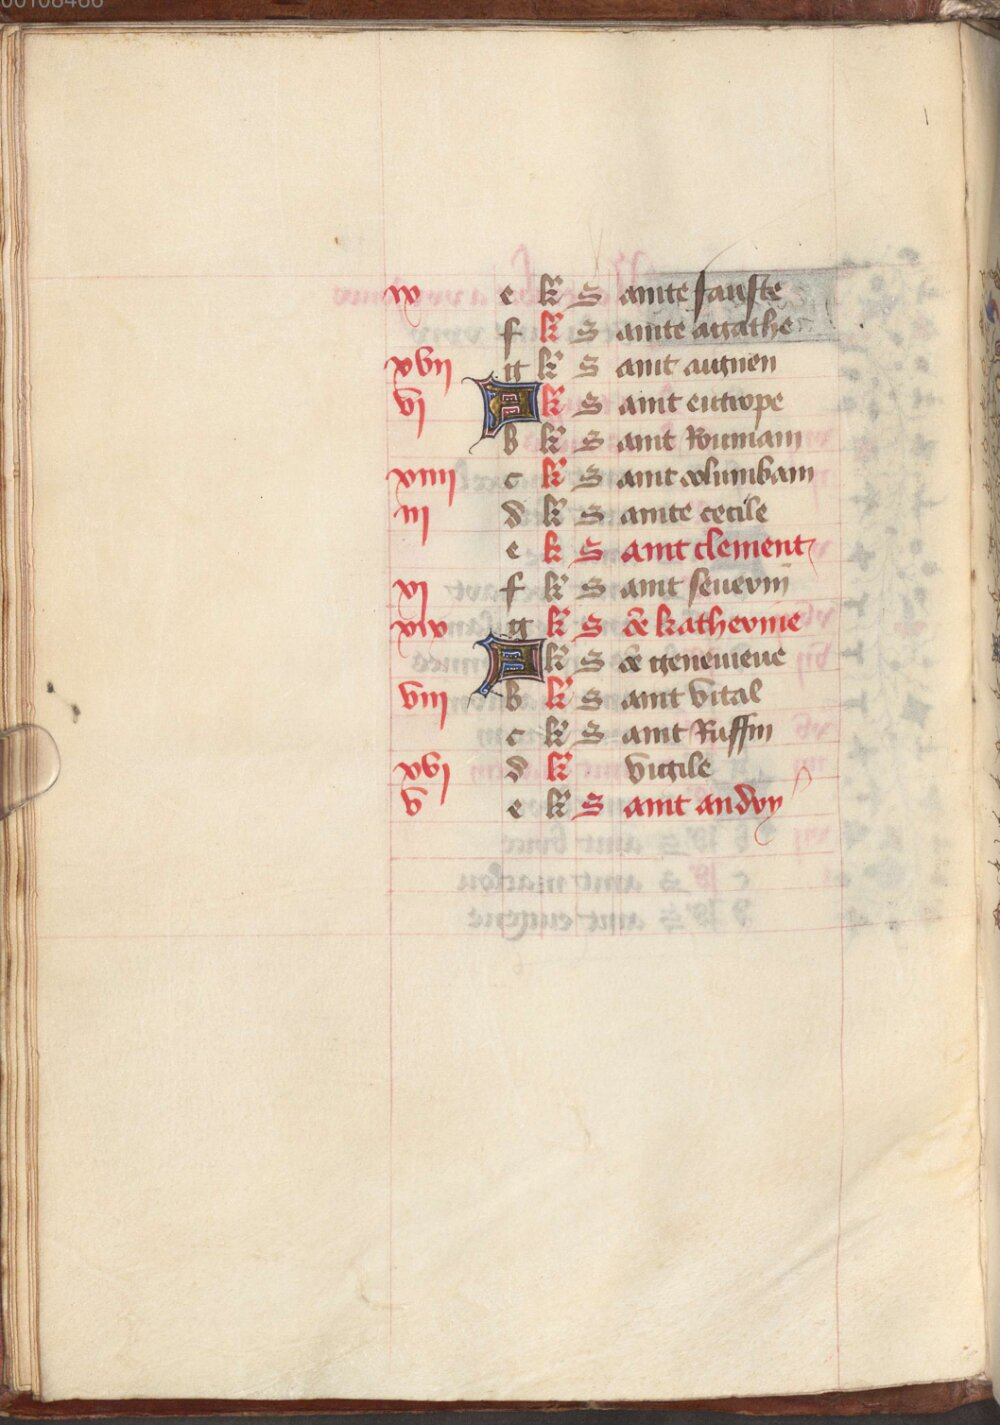 ix e kł S ainte fauste
f kł S ainte agathe
xvii g kł S aint aignen
vi A kł S aint eutrope
b kł S aint Roumain
xiiii c kł S aint columbain
iii d kł S ainte cecile
e kł S aint clement
xi f kł S aint severin
xix g kł S ͠te katherine
A kł S ͠te genevieve
viii b kł S aint vital
c kł S aint Ruffin
xvi d kł vigile
v e kł S aint andry